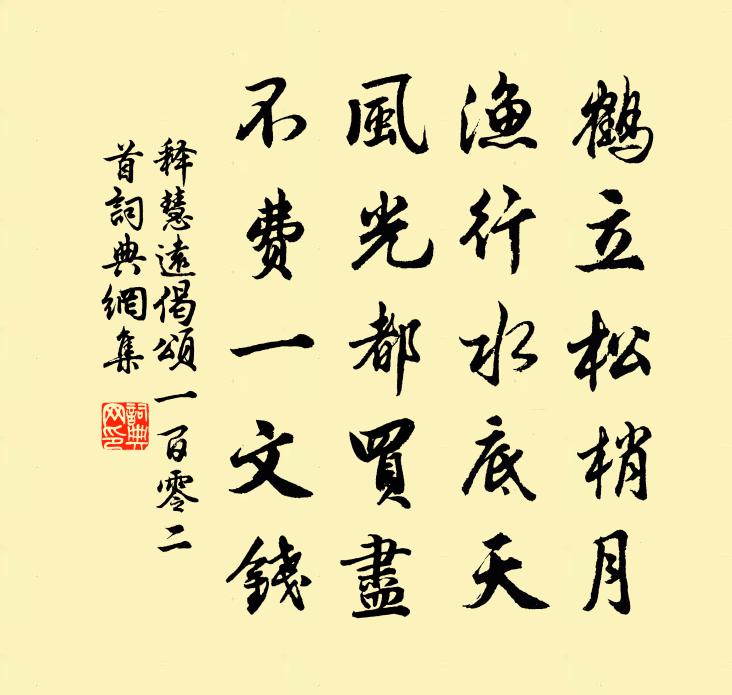 鶴立松梢月
漁行水底天
風光都買盡
不費一文錢
釋慧遠偈頌一百零二
首詞典網集
詞典网印